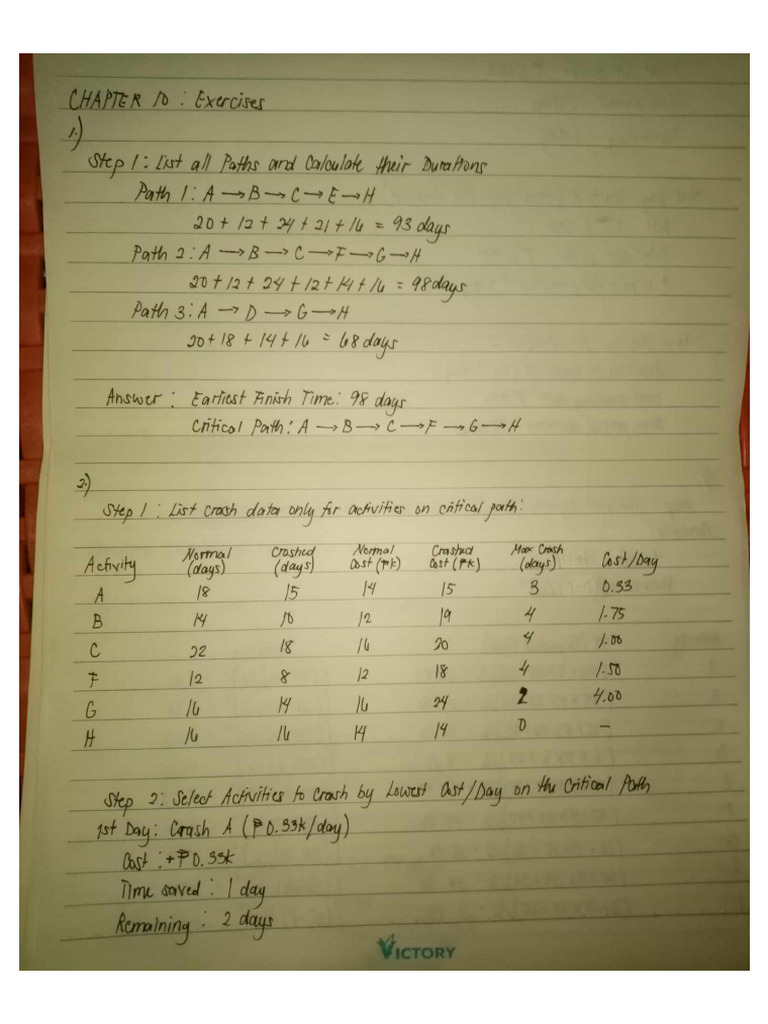 CHAPTER 10 : Exercises
1.)
Step 1 : List all Paths and Calculate their Durations
Path 1 : A → B → C → E → H
20 + 12 + 24 + 21 + 16 = 93 days
Path 2 : A → B → C → F → G → H
20 + 12 + 24 + 12 + 14 + 16 = 98 days
Path 3 : A → D → G → H
20 + 18 + 14 + 16 = 68 days
Answer : Earliest Finish Time : 98 days
Critical Path : A → B → C → F → G → H
2.)
Step 1 : List crash data only for activities on critical path :
Activity Normal (days) Crashed (days) Normal Cost (₱k) Crashed Cost (₱k) Max Crash (days) Cost/Day
A 18 15 14 15 3 0.33
B 14 10 12 19 4 1.75
C 22 18 16 20 4 1.00
F 12 8 12 18 4 1.50
G 16 14 16 24 2 4.00
H 16 16 14 14 0 —
Step 2 : Select Activities to Crash by Lowest Cost/Day on the Critical Path
1st Day : Crash A (₱0.33k/day)
Cost : +₱0.33k
Time saved : 1 day
Remaining : 2 days
VICTORY